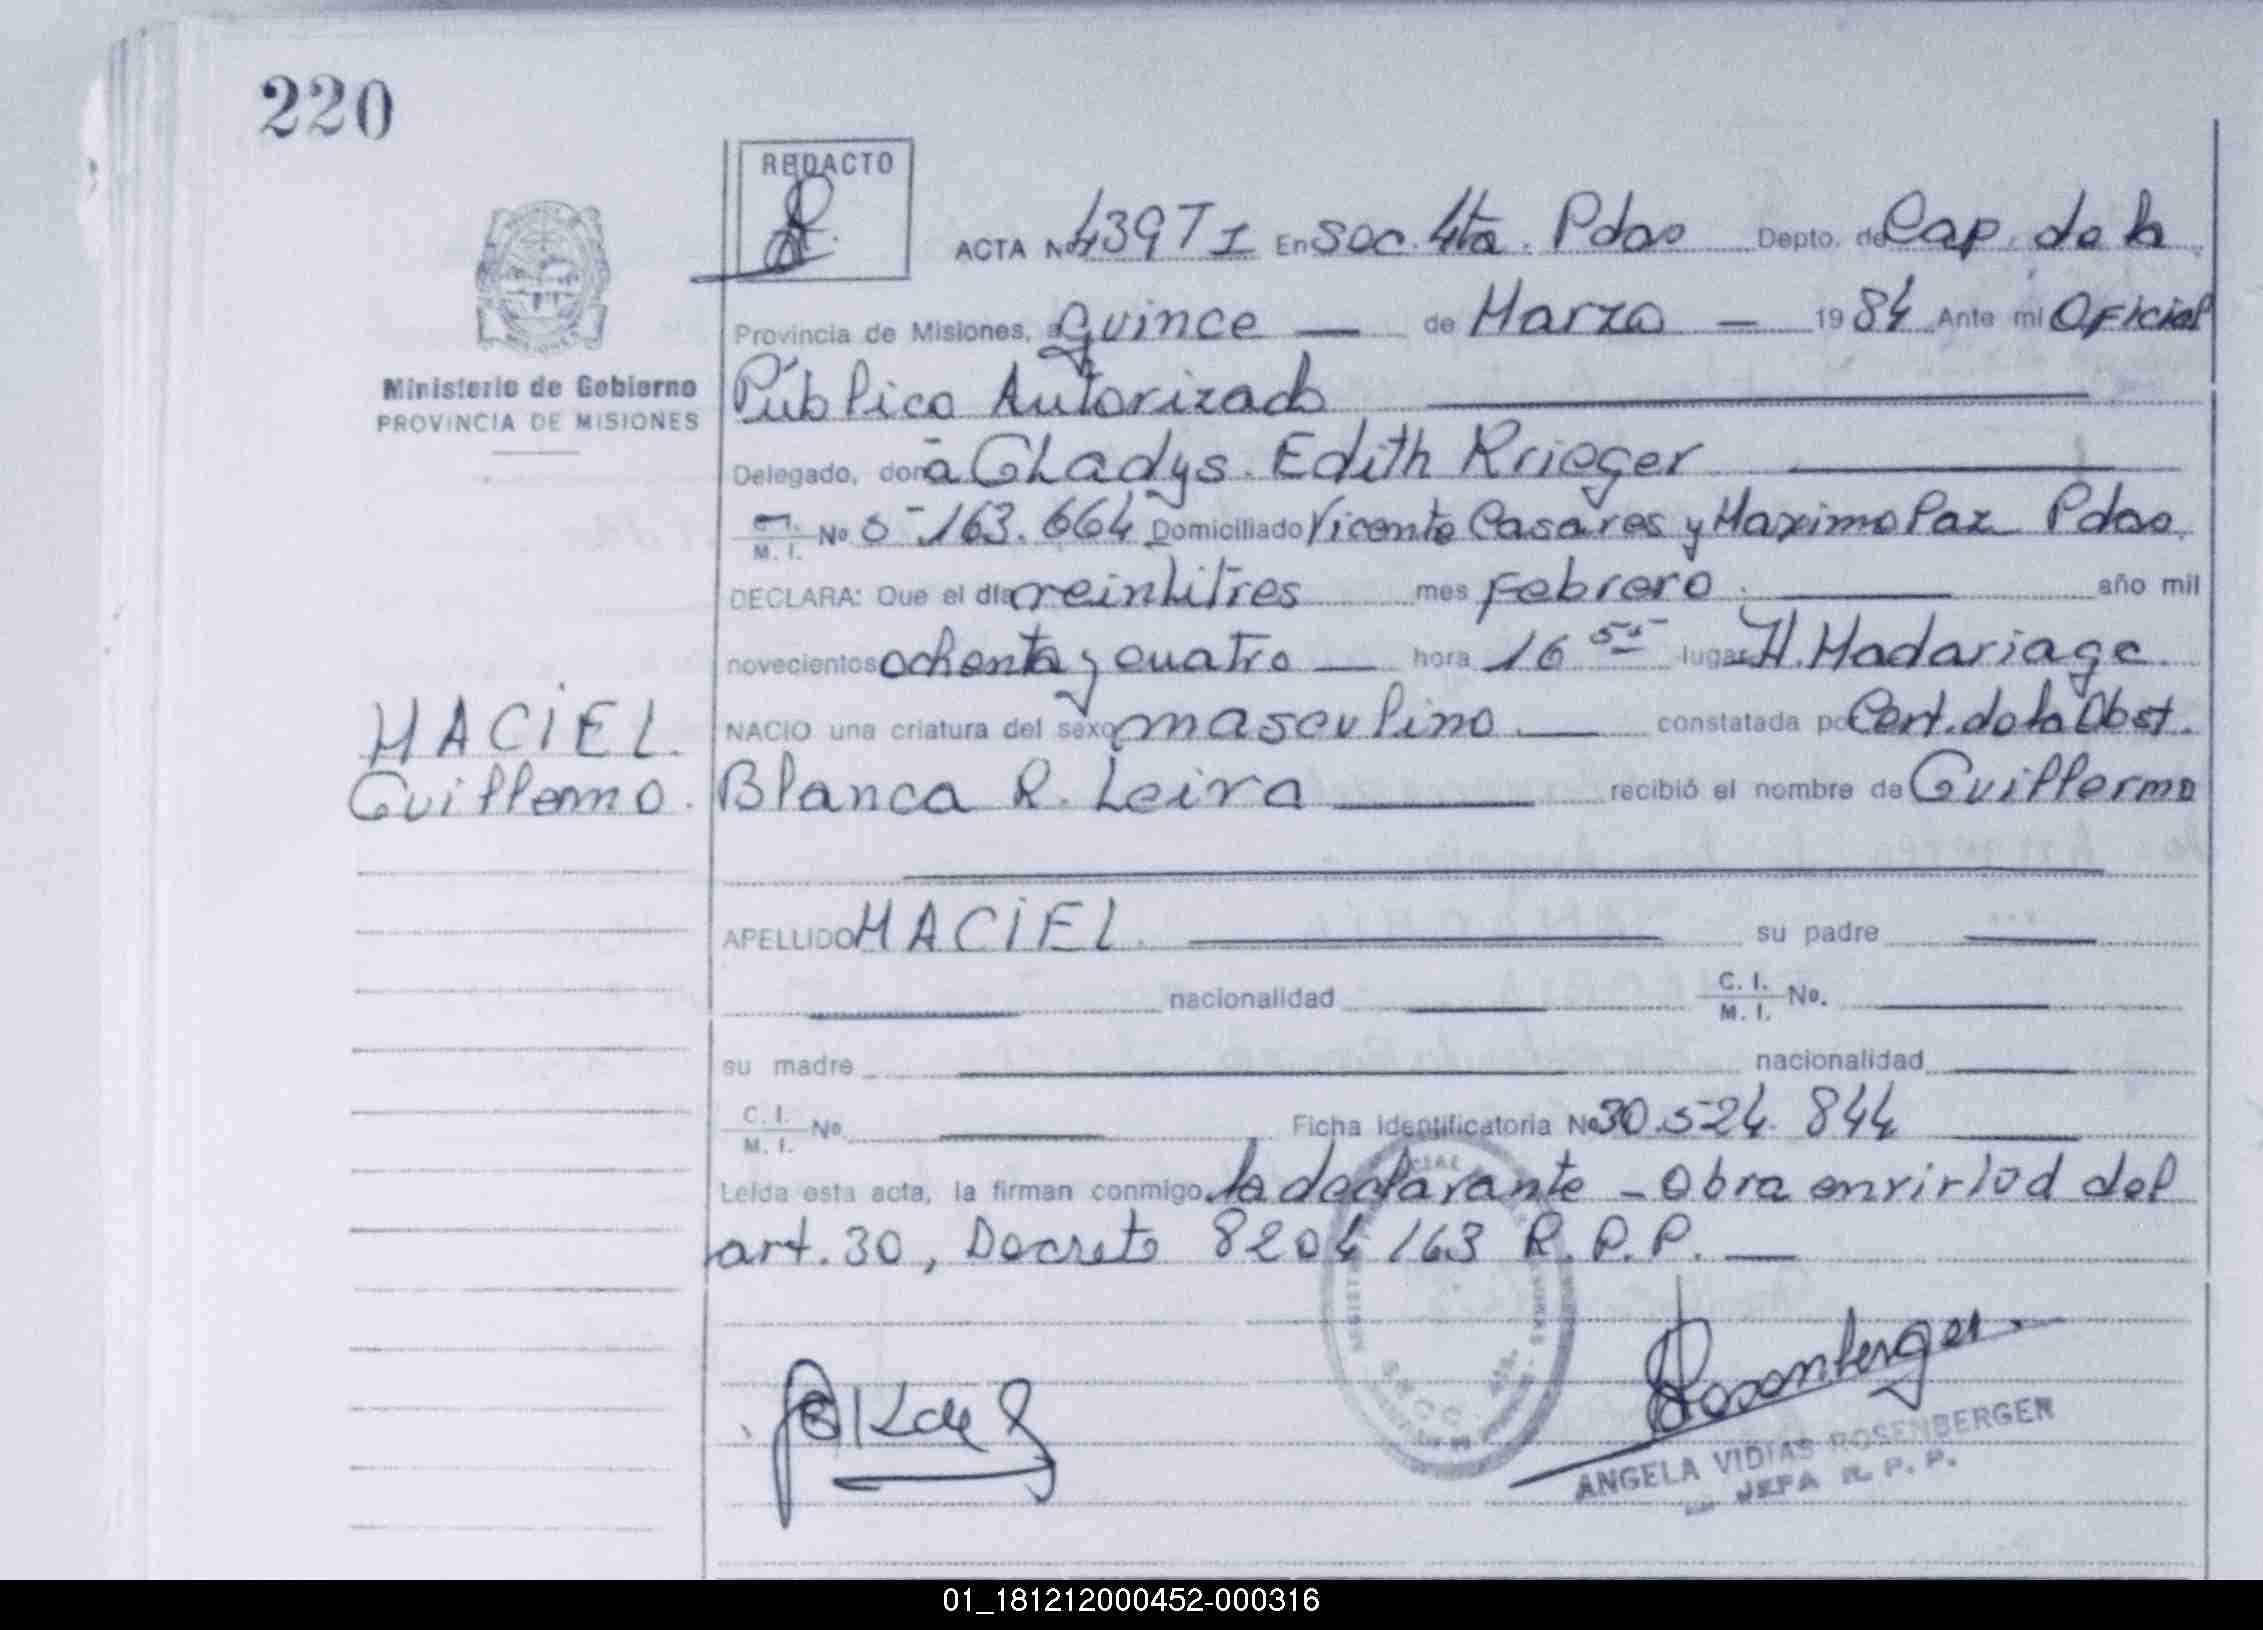 220
REDACTO
ACTA No 439 T I En Sec. 4ta. Pdas Depto. de Cap. de la
Provincia de Misiones, a quince — de Marzo — 1984 Ante mi Oficial
Ministerio de Gobierno
PROVINCIA DE MISIONES
Público Autorizado
Delegado, don a Gladys Edith Krieger
M. I. No 5-163.664 Domiciliado Vicente Casares y Maximo Paz Pdas.
DECLARA: Que el día veintitres mes Febrero año mil
novecientos ochenta y cuatro — hora 16 55 lugar H. Madariaga
MACIEL.
Guillermo.
NACIO una criatura del sexo masculino — constatada por Cert. de la Obst.
Blanca R. Leiva — recibió el nombre de Guillermo
APELLIDO MACIEL. — su padre —
— nacionalidad — C. I. M. I. No. —
su madre — nacionalidad —
C. I. M. I. No. — Ficha Identificatoria No 30.524.844 —
Leída esta acta, la firman conmigo la declarante - Obra en virtud del
art. 30, Decreto 8204/63 R.P.P. —
Rosenberger
ANGELA VIDIAS ROSENBERGER
JEFA R. P. P.
01_181212000452-000316